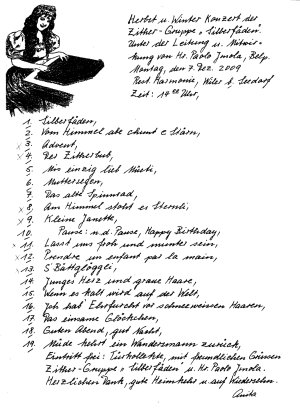 Herbst u. Winter Konzert der
Zither-Gruppe "Silberfäden".
Unter der Leitung u. Mitwir-
kung von Hr. Paolo Imola, Belp.
Montag, den 7. Dez. 2009
Rest. Harmonie, Wiler b. Seedorf
Zeit: 14⁰⁰ Uhr,
1. Silberfäden,
2. Vom Himmel abe chunt e Stärn,
x 3. Advent,
x 4. Der Zitherbub,
5. Mis einzig lieb Müeti,
6. Muttersegen,
7. Das alte Spinnrad,
x 8. Am Himmel stoht es Sternli,
x 9. Kleine Janette,
10. Pause: n.d. Pause, Happy Birthday,
x 11. Lasst uns froh und munter sein,
x 12. Prendre un enfant par la main,
x 13. S'Bättglöggli,
14. Junges Herz und graue Haare,
15. Wenn es kalt wird auf der Welt,
16. Hab' Ehrfurcht vor schneeweissen Haaren,
17. Das einsame Glöckchen,
18. Guten Abend, gut Nacht,
19. Müde kehrt ein Wandersmann zurück,
Eintritt frei: Türkollekte, mit freundlichen Grüssen
Zither-Gruppe "Silberfäden" u. Hr. Paolo Imola.
Herzlichen Dank, gute Heimkehr u. auf Wiedersehn.
Anita